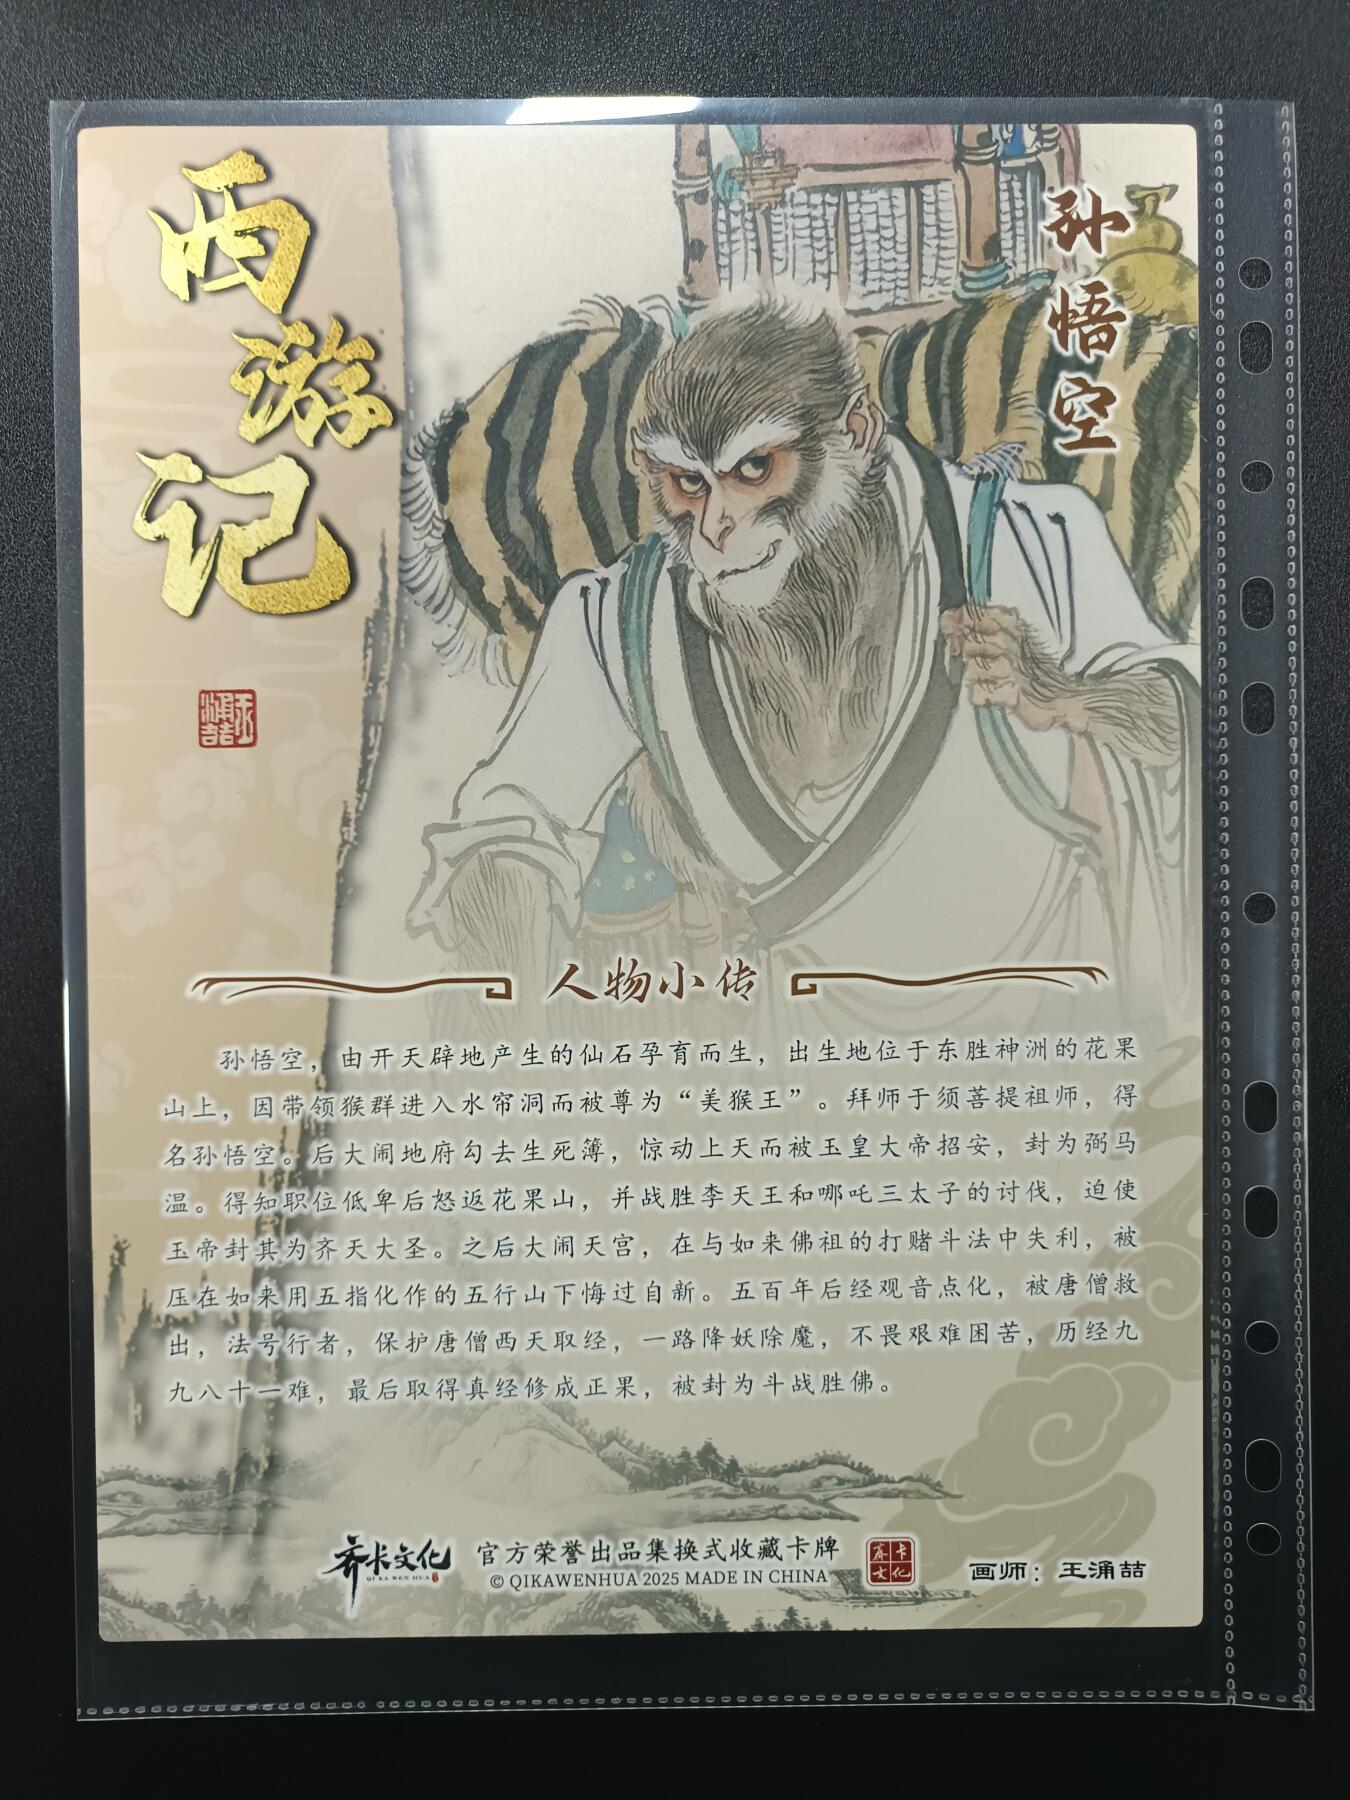 西游记
孙悟空
王涌喆
人物小传
孙悟空，由开天辟地产生的仙石孕育而生，出生地位于东胜神洲的花果
山上，因带领猴群进入水帘洞而被尊为“美猴王”。拜师于须菩提祖师，得
名孙悟空。后大闹地府勾去生死簿，惊动上天而被玉皇大帝招安，封为弼马
温。得知职位低卑后怒返花果山，并战胜李天王和哪吒三太子的讨伐，迫使
玉帝封其为齐天大圣。之后大闹天宫，在与如来佛祖的打赌斗法中失利，被
压在如来用五指化作的五行山下悔过自新。五百年后经观音点化，被唐僧救
出，法号行者，保护唐僧西天取经，一路降妖除魔，不畏艰难困苦，历经九
九八十一难，最后取得真经修成正果，被封为斗战胜佛。
齐卡文化
QI KA WEN HUA
官方荣誉出品集换式收藏卡牌
© QIKAWENHUA 2025 MADE IN CHINA
齐卡文化
画师：王涌喆